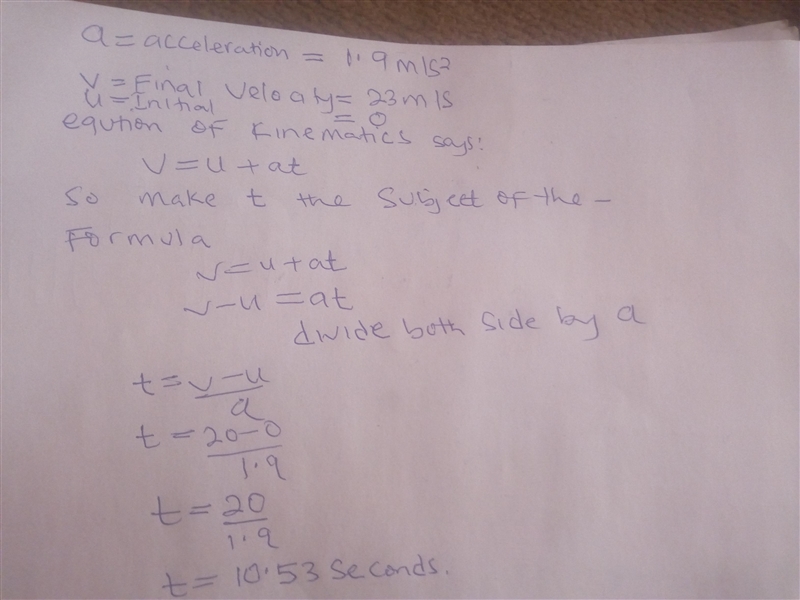 a = acceleration = 1.9 m/s²
V = Final Velocity = 23 m/s
u = Initial = 0
eqution of Kinematics says:
V = u + at
So make t the Subject of the -
Formula
v = u + at
v - u = at
divide both side by a
t = v - u / a
t = 20 - 0 / 1.9
t = 20 / 1.9
t = 10.53 Seconds.